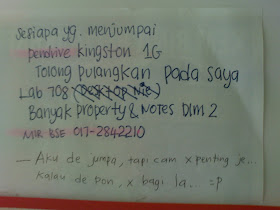 Sesiapa yg. menjumpai
pendrive kingston 1G
Tolong pulangkan pada saya
Lab 708
Banyak property & NOTES Dlm 2
MIR BSE 017-2842210
— Aku de jumpa, tapi cam x penting je...
Kalau de pon, x bagi la... =p